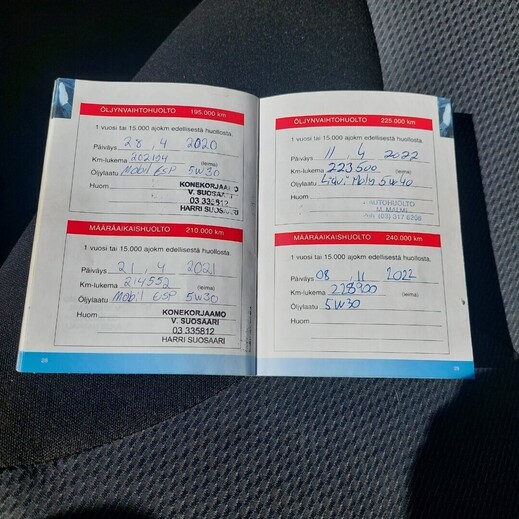 ÖLJYNVAIHTOHUOLTO 195.000 km
1 vuosi tai 15.000 ajokm edellisestä huollosta.
Päiväys 28 . 4 2020
Km-lukema 202194 (leima)
Öljylaatu Mobil ESP 5W30
Huom
KONEKORJAAMO
V. SUOSAARI
03 335812
HARRI SUOSAARI
MÄÄRÄAIKAISHUOLTO 210.000 km
1 vuosi tai 15.000 ajokm edellisestä huollosta.
Päiväys 21 . 4 2021
Km-lukema 214552 (leima)
Öljylaatu Mobil ESP 5W30
Huom
KONEKORJAAMO
V. SUOSAARI
03 335812
HARRI SUOSAARI
28
ÖLJYNVAIHTOHUOLTO 225.000 km
1 vuosi tai 15.000 ajokm edellisestä huollosta.
Päiväys 11 . 4 2022
Km-lukema 223500 (leima)
Öljylaatu Liqui Moly 5W40
Huom
AUTOHUOLTO
M. MALMI
(03) 317 6206
MÄÄRÄAIKAISHUOLTO 240.000 km
1 vuosi tai 15.000 ajokm edellisestä huollosta.
Päiväys 08 . 11 2022
Km-lukema 228900 (leima)
Öljylaatu 5W30
Huom
29